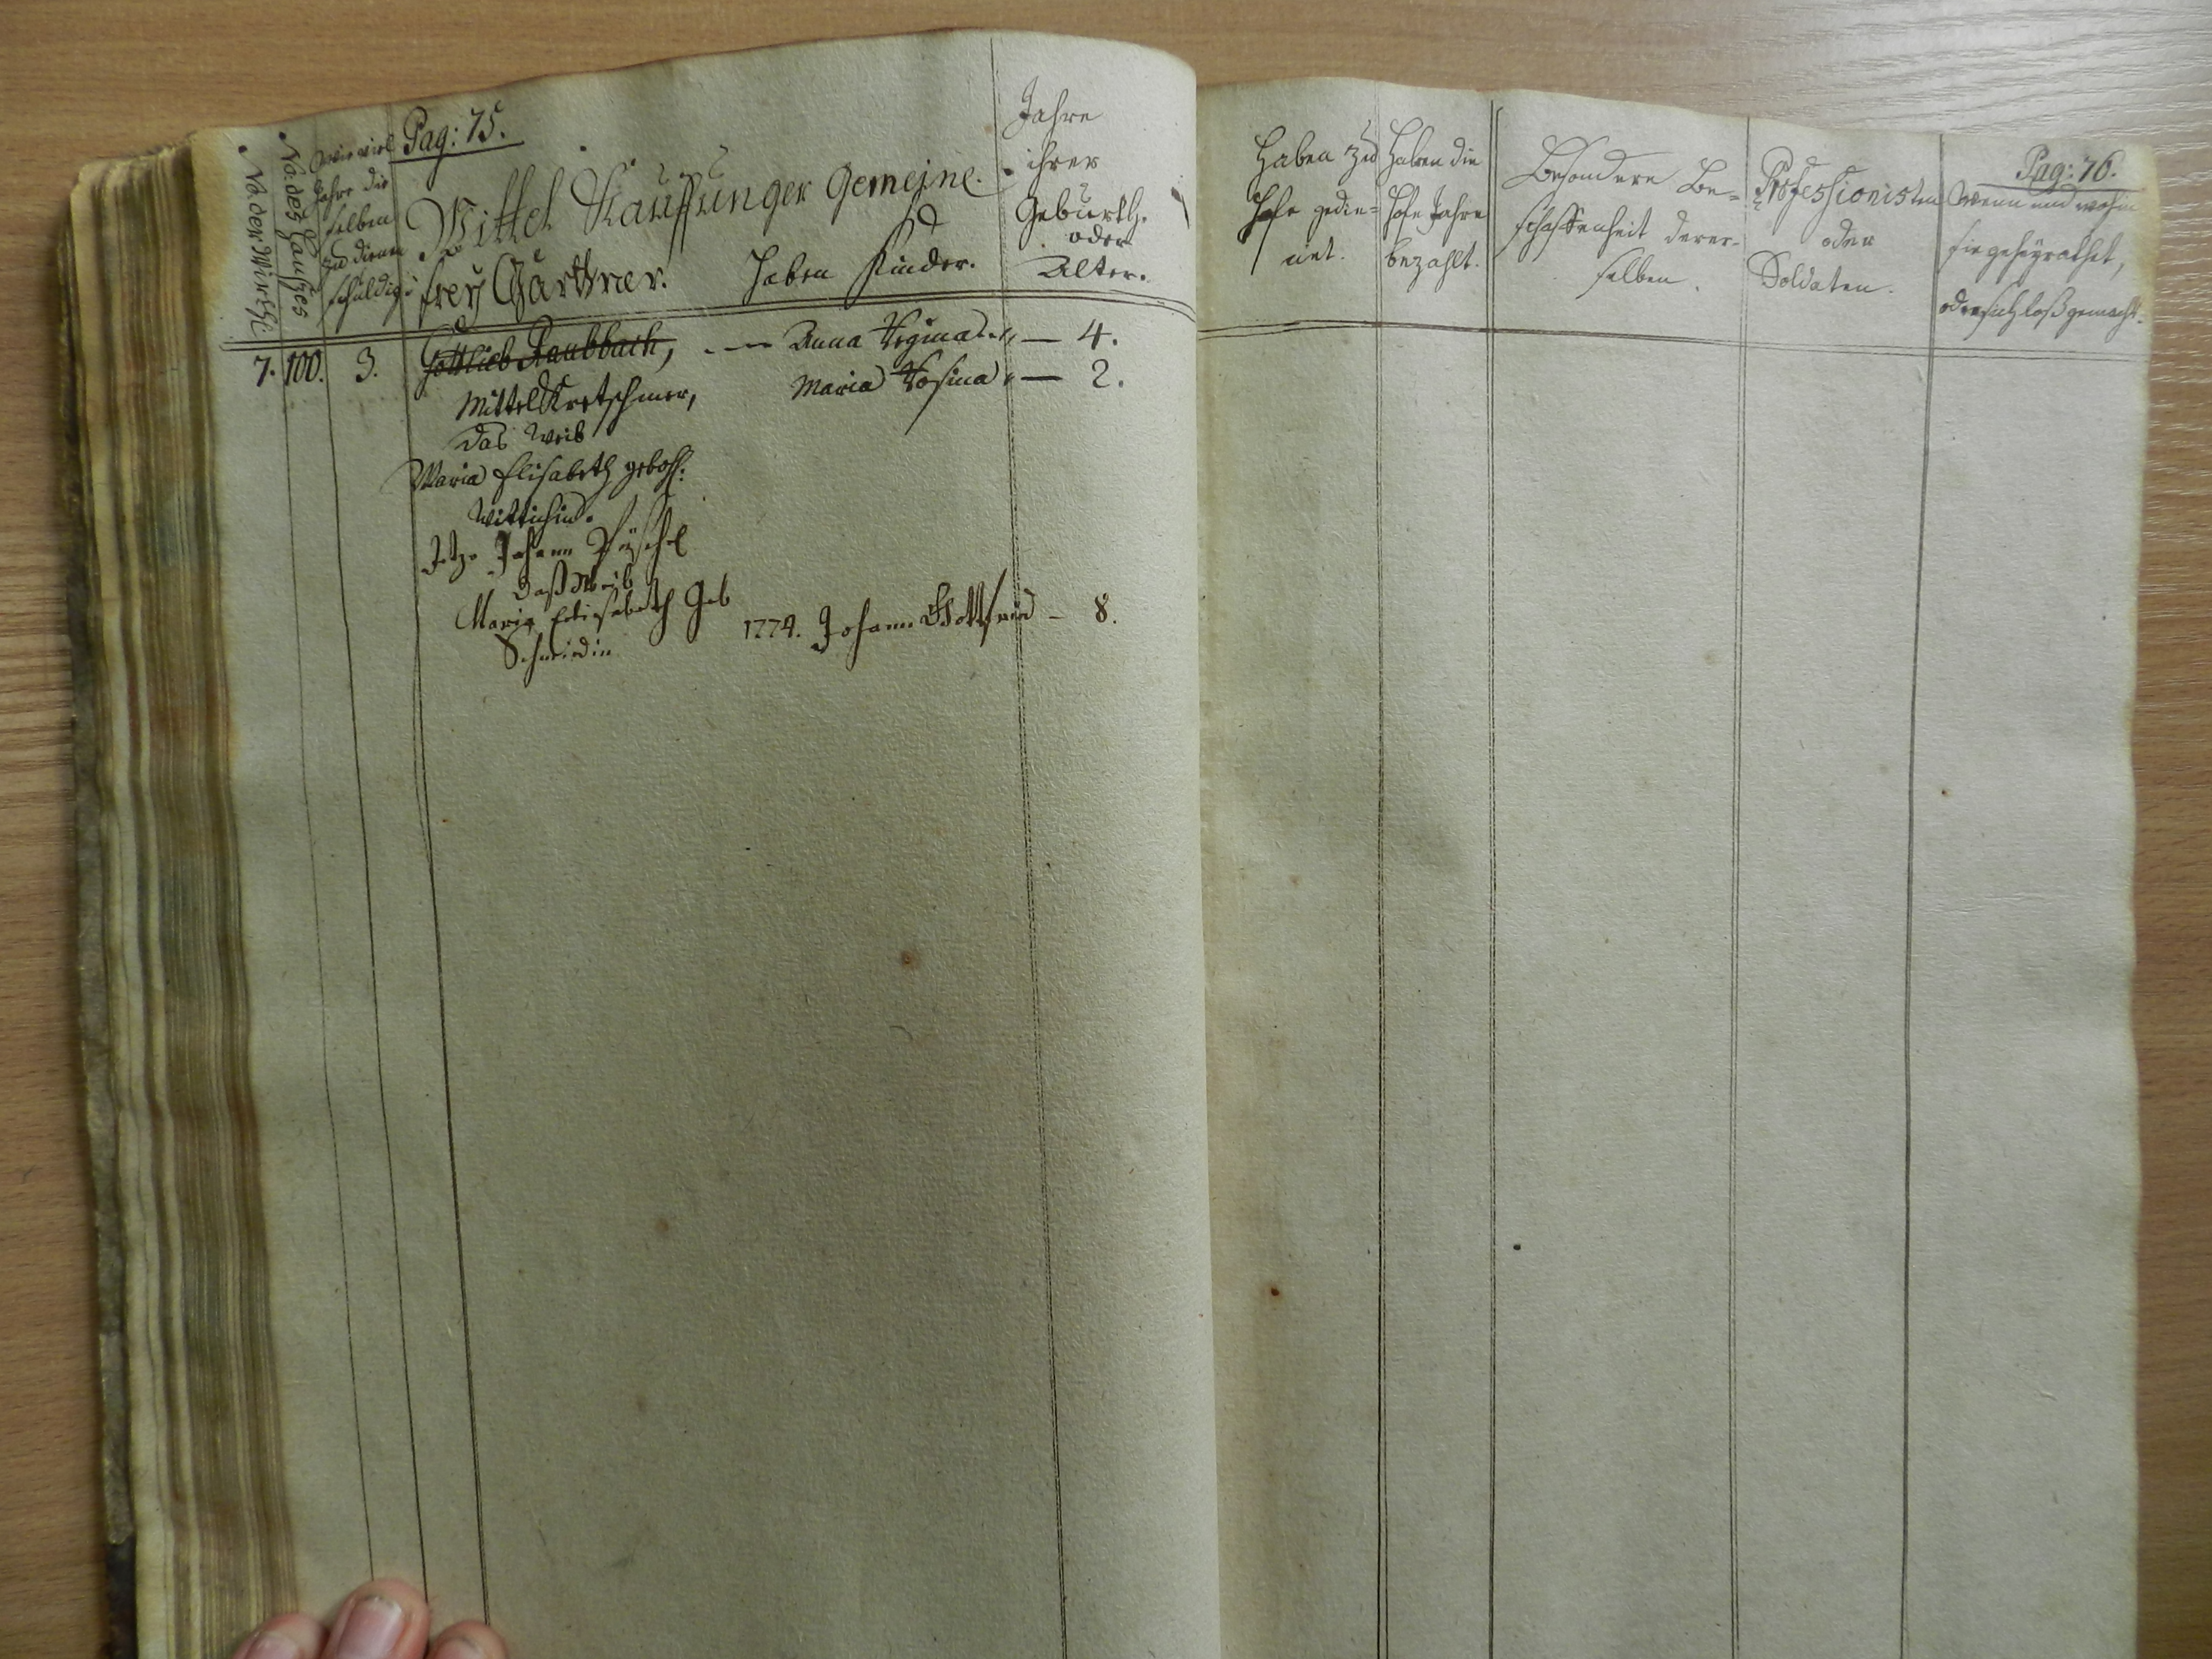 Pag: 75.
No. der Wirthe
No. des Hauses
Wie viel
Jahre die
selben
zu dienen
schuldig
Mittel Kauffunger Gemeine.
frey Gärtner.
Haben Kinder.
Jahre
ihrer
Geburth.
oder
Alter.
7. 100. 3. Gottlieb Raubbach, Anna Regina — 4.
Mittel Kretschmer, Maria Rosina — 2.
das Weib
Maria Elisabeth gebohr:
Wittichin.
Jetzo Johann Püschel
daß Weib
Maria Elisabeth Geb
Schmiedin
1774. Johann Gottfried — 8.
Haben zu
Hofe gedie=
net.
Haben die
Hofe Jahre
bezahlt.
Besondere Be=
schaffenheit derer=
selben.
Professionisten
oder
Soldaten.
Pag: 76.
Wenn und wohin
sie geheyrathet,
oder sich loß gemacht.